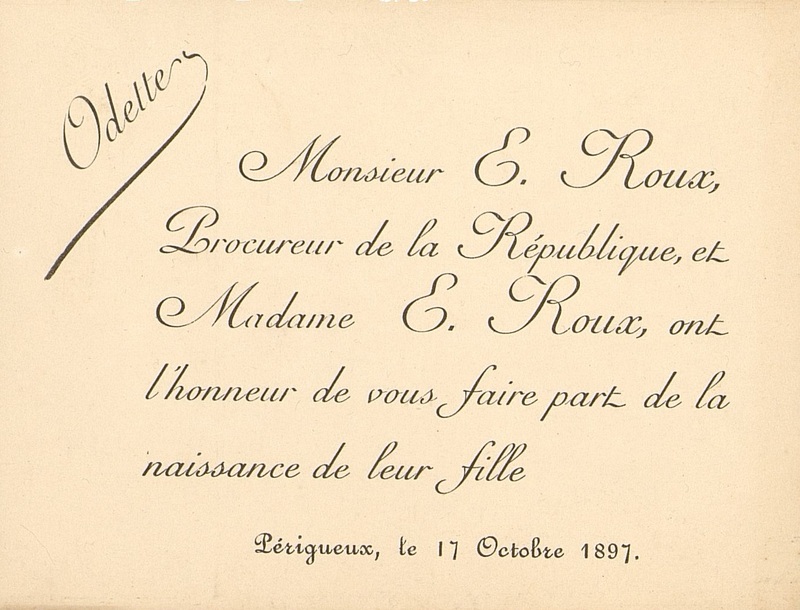 Odette
Monsieur E. Roux,
Procureur de la République, et
Madame E. Roux, ont
l'honneur de vous faire part de la
naissance de leur fille
Périgueux, le 17 Octobre 1897.